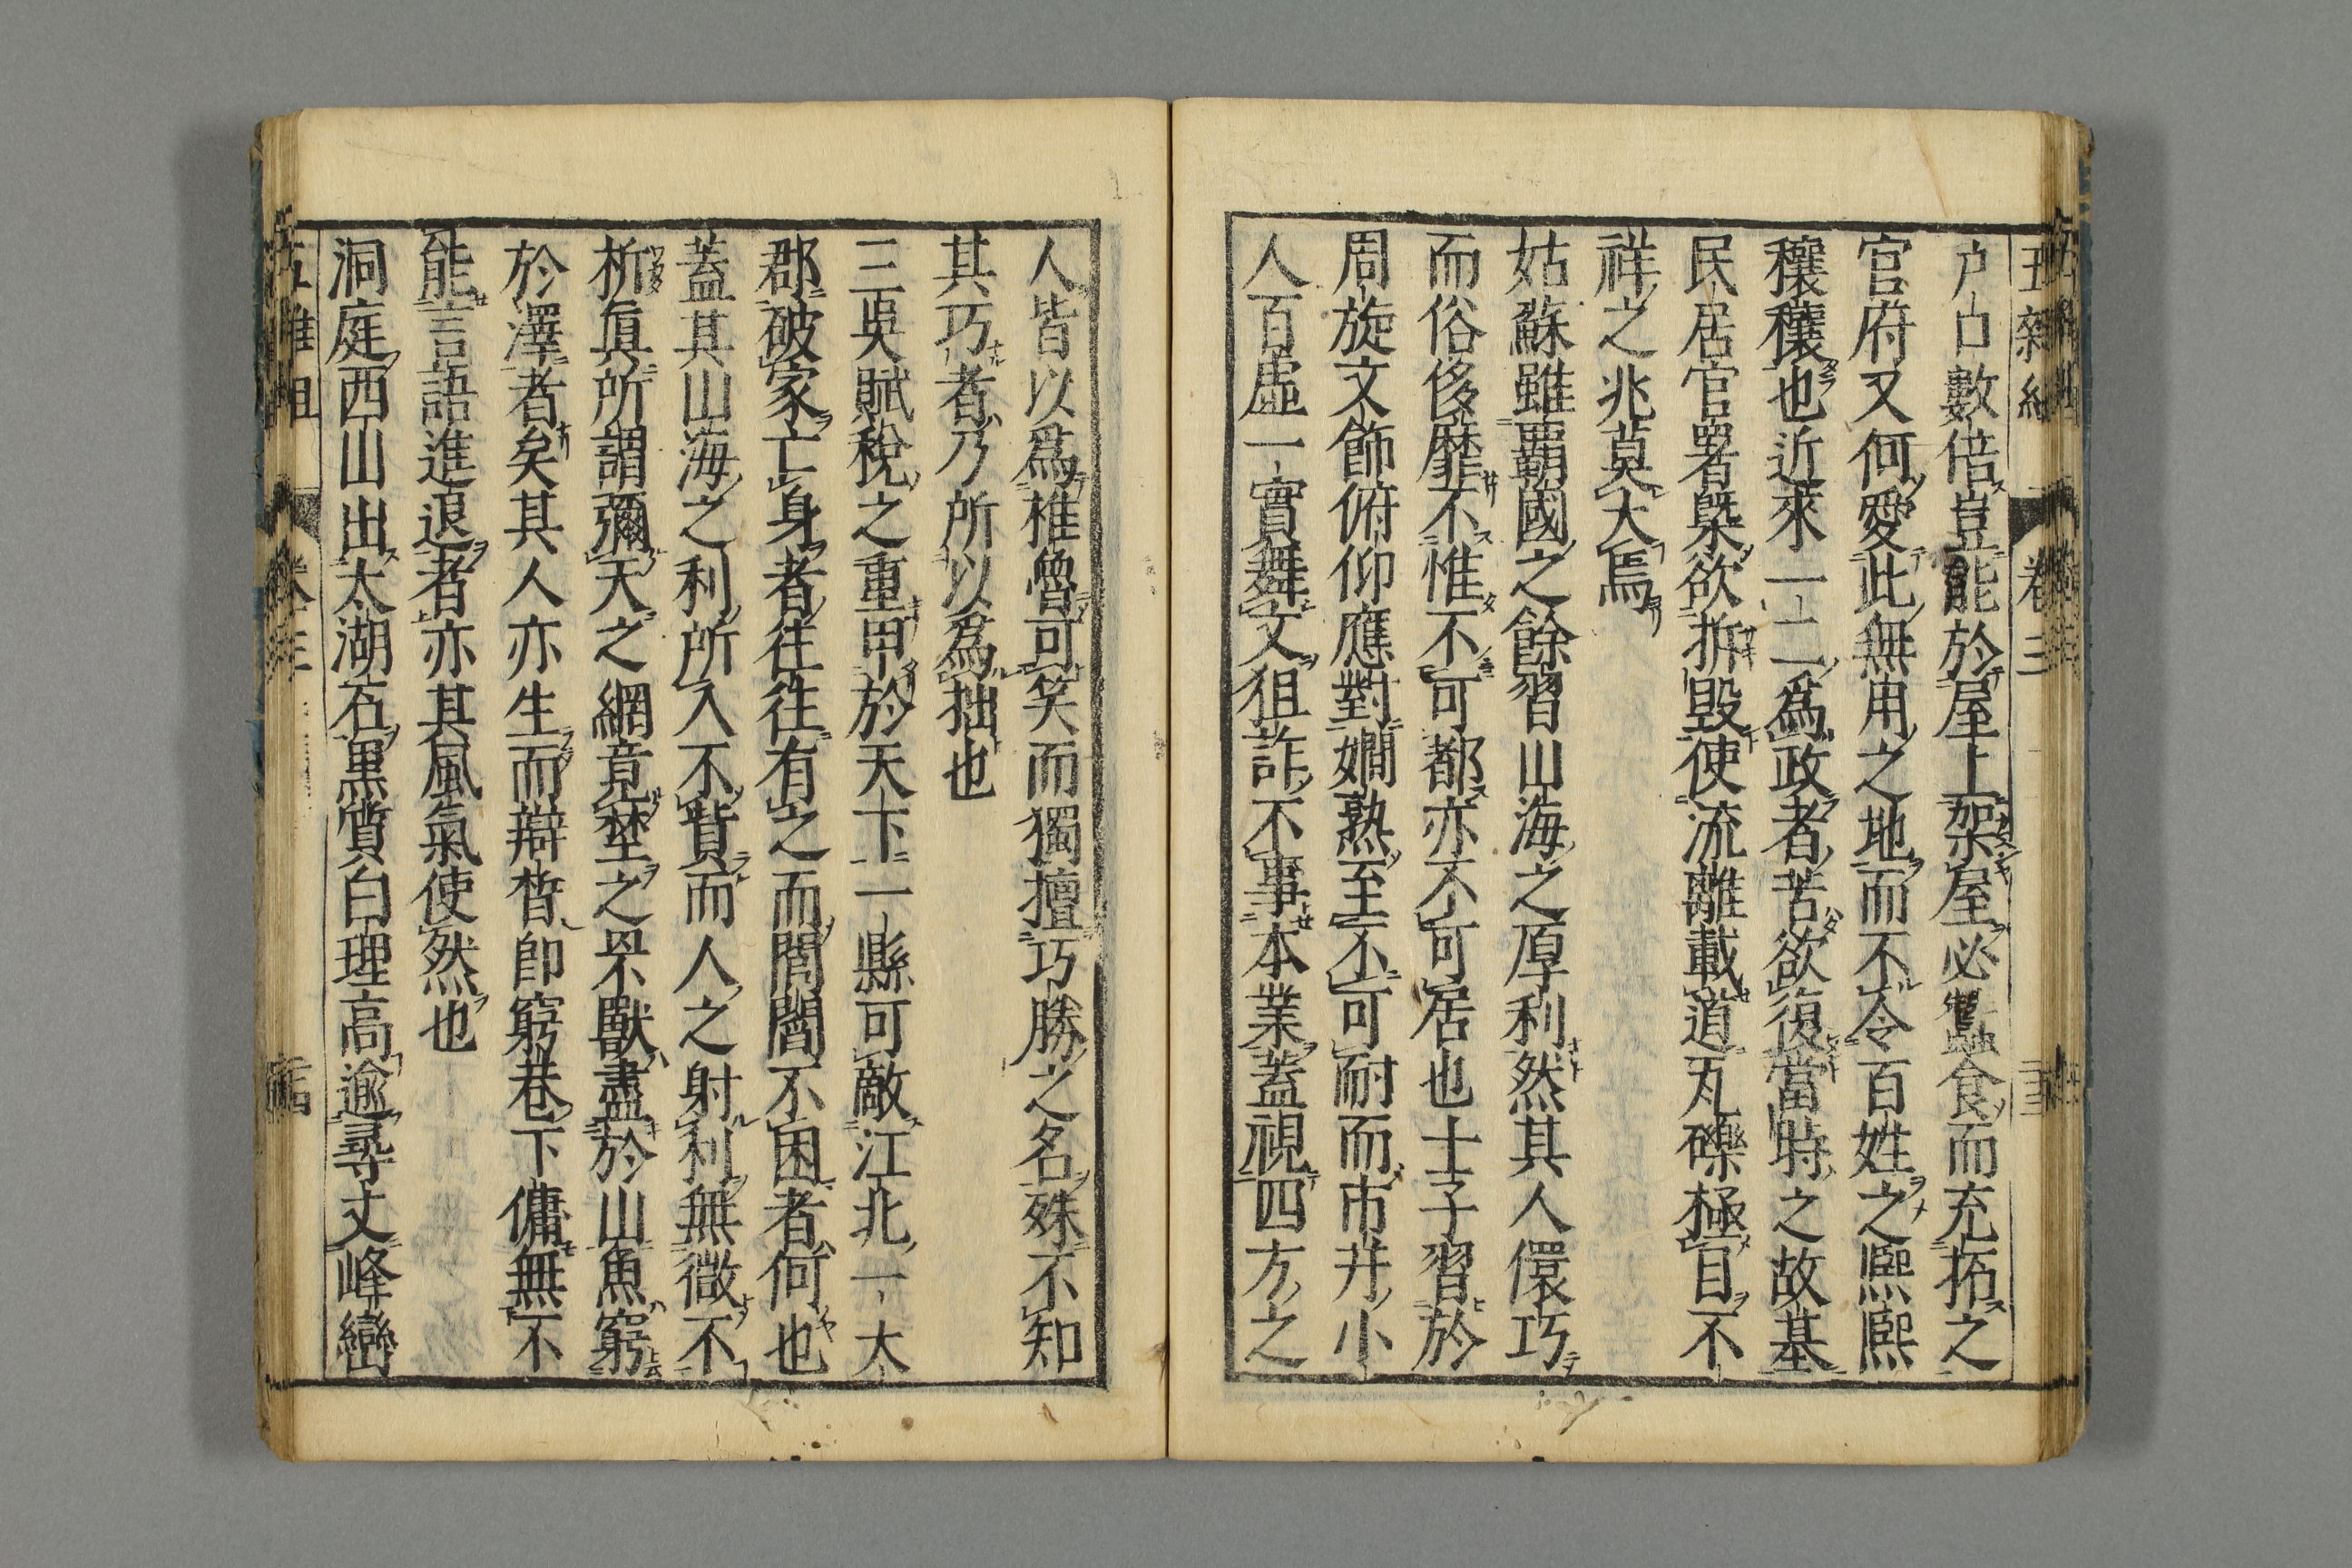 五雜組 卷三
戸口數倍豈能於屋上架屋必蠶食而充拓之
官府又何愛此無用之地而不令百姓之熈熈
穰穰也近來一二爲政者苦欲復當時之故基
民居官署槩欲拆毀使流離載道瓦礫極目不
祥之兆莫大焉
姑蘇雖霸國之餘習山海之厚利然其人儇巧
而俗侈靡不惟不可都亦不可居也士子習於
周旋文飾俯仰應對嫺熟至不可耐而市井小
人百虛一實舞文狙詐不事本業蓋視四方之
人皆以爲椎魯可笑而獨擅巧勝之名殊不知
其巧者乃所以爲拙也
三吳賦稅之重甲於天下一縣可敵江北一大
郡破家亡身者往往有之而閭閻不困者何也
蓋其山海之利所入不貲而人之射利無微不
析眞所謂彌天之網竟埜之罘獸盡於山魚窮
於澤者矣其人亦生而辯晳卽窮巷下傭無不
能言語進退者亦其風氣使然也
洞庭西山出太湖石黑質白理高逾尋丈峰巒
五雜俎 卷三